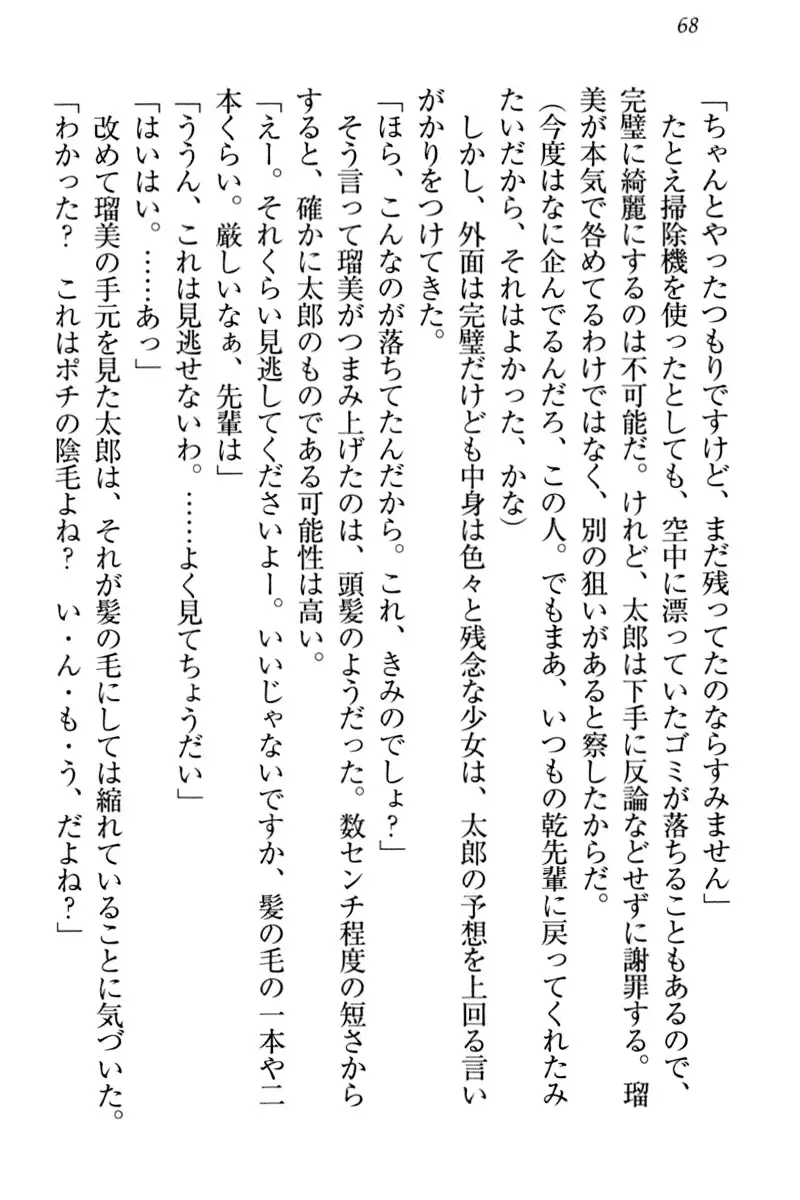 68
「ちゃんとやったつもりですけど、まだ残ってたのならすみません」
　たとえ掃除機を使ったとしても、空中に漂っていたゴミが落ちることもあるので、
完璧に綺麗にするのは不可能だ。けれど、太郎は下手に反論などせずに謝罪する。瑠
美が本気で咎めてるわけではなく、別の狙いがあると察したからだ。
（今度はなに企んでるんだろ、この人。でもまあ、いつもの乾先輩に戻ってくれたみ
たいだから、それはよかった、かな）
　しかし、外面は完璧だけども中身は色々と残念な少女は、太郎の予想を上回る言い
がかりをつけてきた。
「ほら、こんなのが落ちてたんだから。これ、きみのでしょ？」
　そう言って瑠美がつまみ上げたのは、頭髪のようだった。数センチ程度の短さから
すると、確かに太郎のものである可能性は高い。
「えー。それくらい見逃してくださいよー。いいじゃないですか、髪の毛の一本や二
本くらい。厳しいなぁ、先輩は」
「ううん、これは見逃せないわ。……よく見てちょうだい」
「はいはい。……あっ」
　改めて瑠美の手元を見た太郎は、それが髪の毛にしては縮れていることに気づいた。
「わかった？　これはポチの陰毛よね？　い・ん・も・う、だよね？」